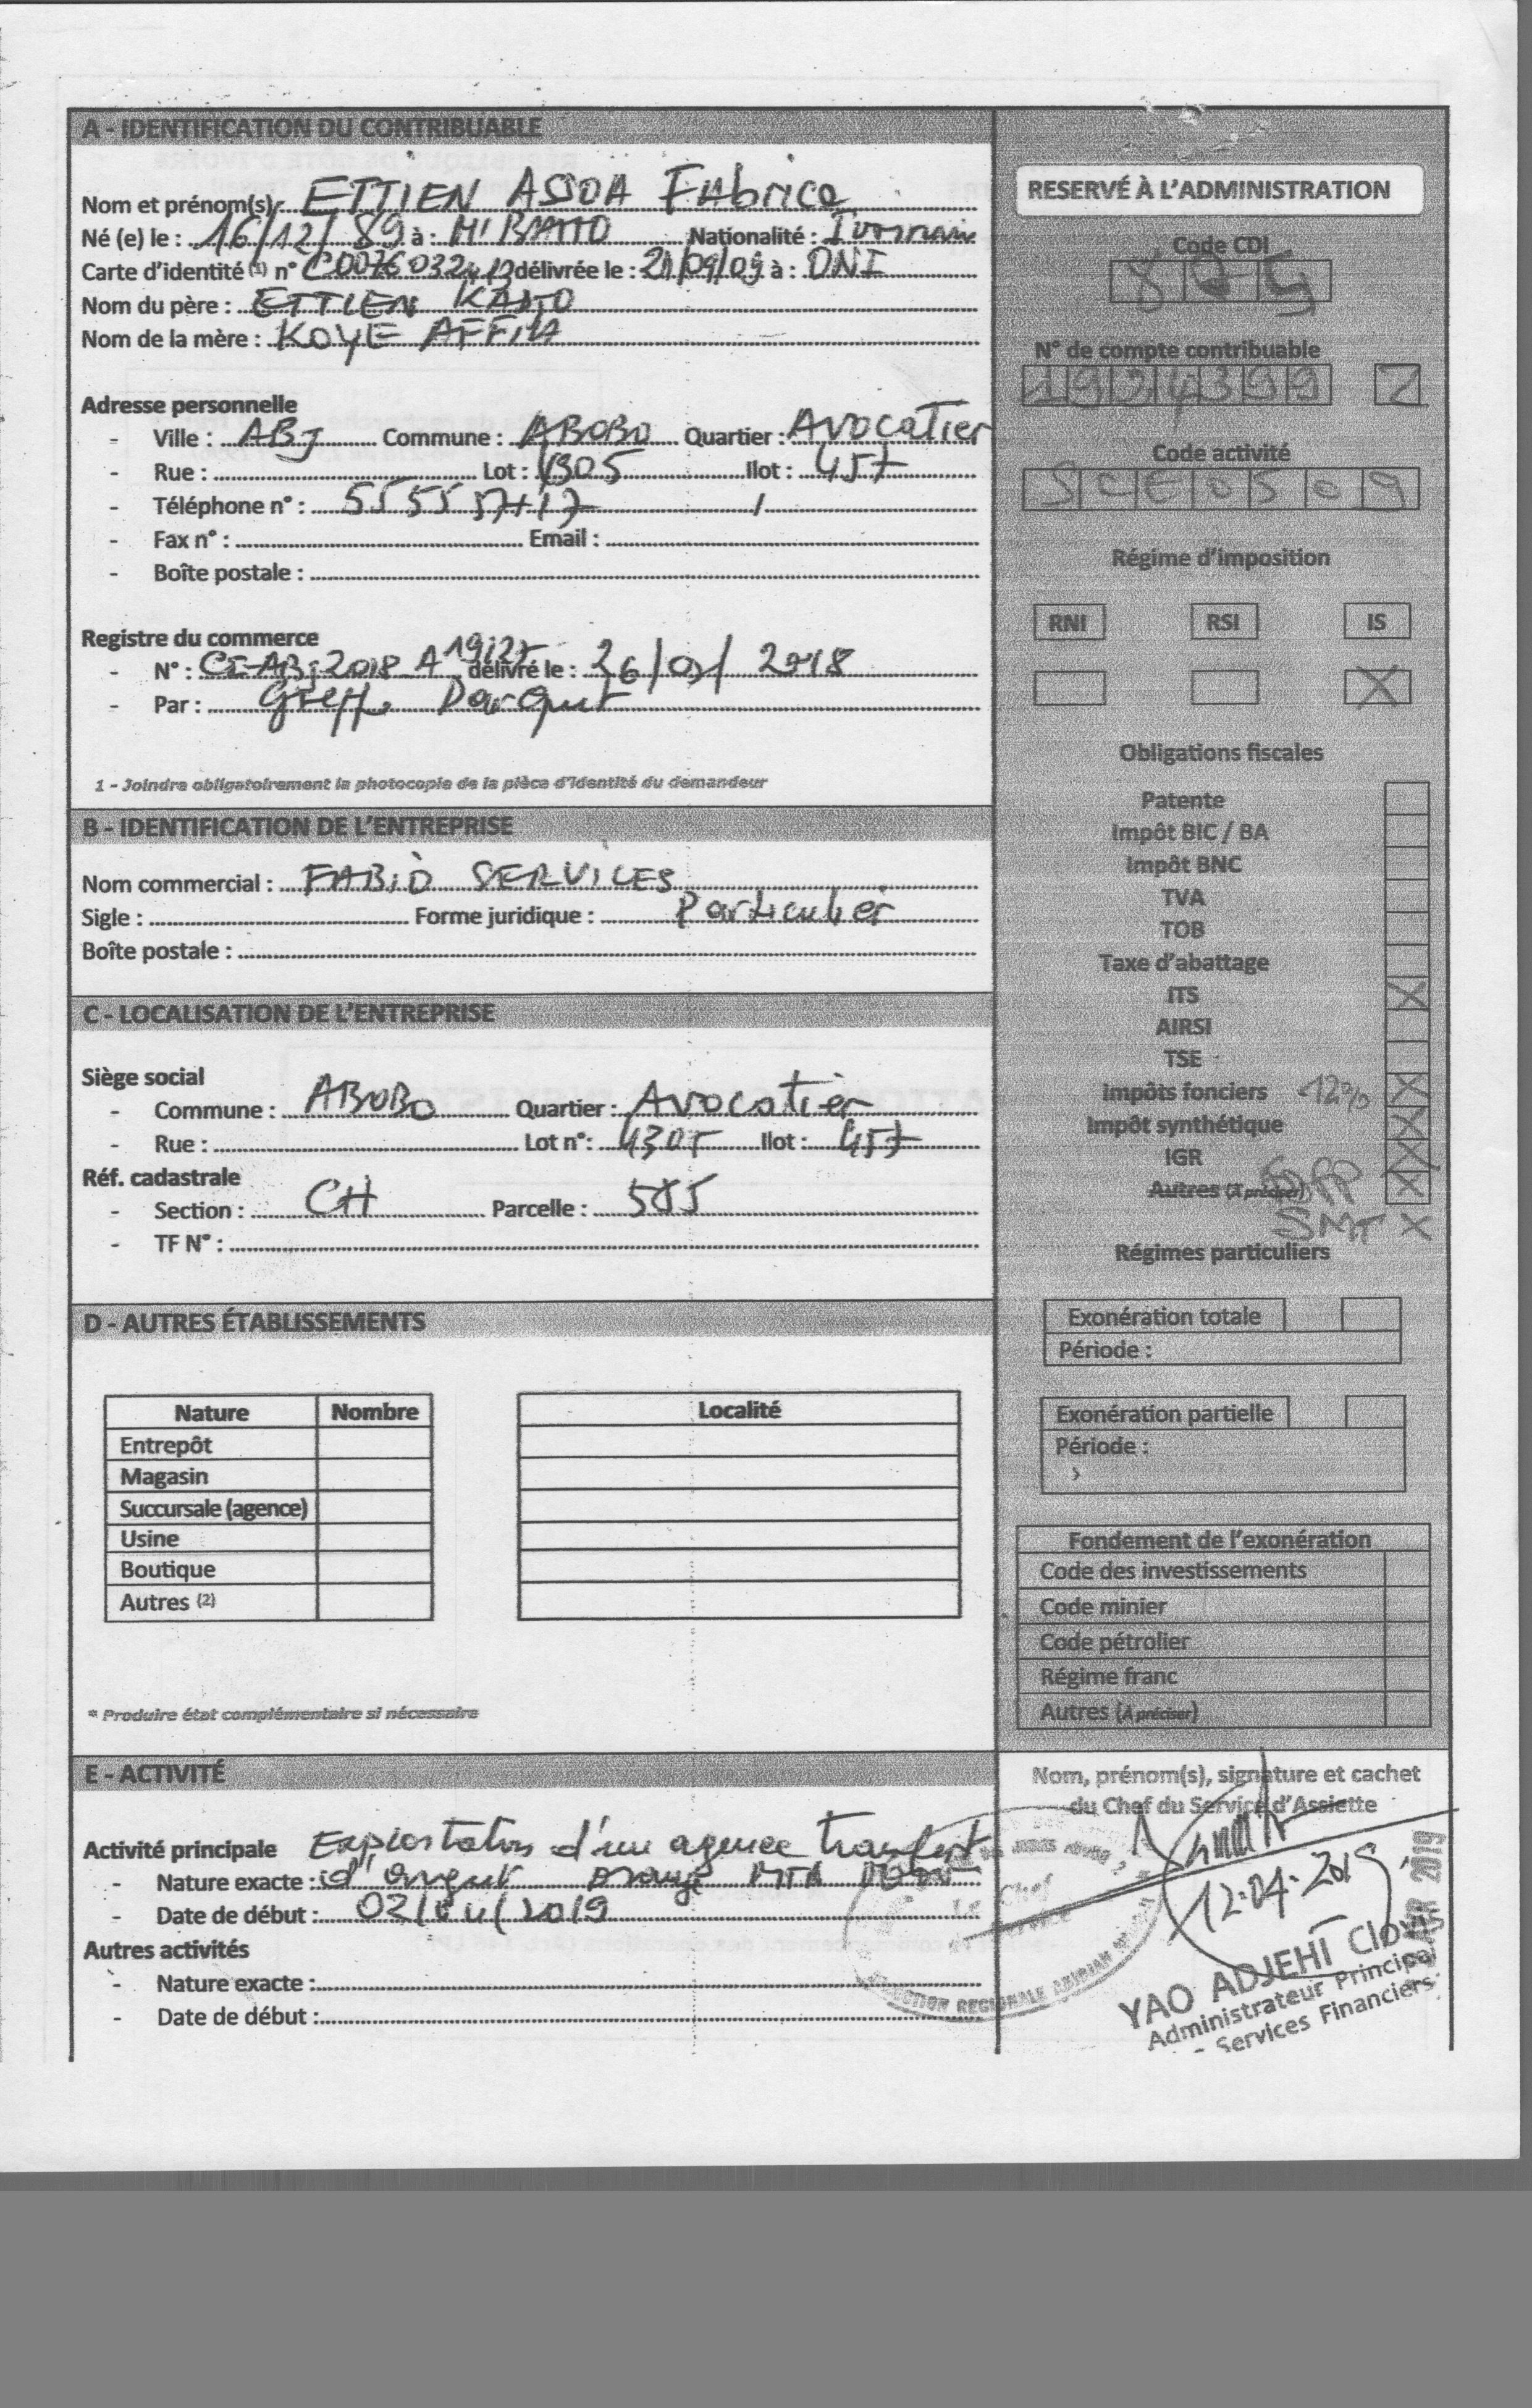 A - IDENTIFICATION DU CONTRIBUABLE
Nom et prénom(s) : ETTIEN ASSOA Fabrice
Né (e) le : 16/12/89 à : M'BATTO Nationalité : Ivoirienne
Carte d'identité (1) n° C0076032413 délivrée le : 21/09/09 à : ONI
Nom du père : ETTIEN KADJO
Nom de la mère : KOYE AFFIA
Adresse personnelle
- Ville : ABJ Commune : ABOBO Quartier : Avocatier
- Rue : Lot : 4305 Ilot : 457
- Téléphone n° : 5555 /
- Fax n° : Email :
- Boîte postale :
Registre du commerce
- N° : CI-ABJ-2018-A 19127 délivré le : 26/ / 2018
- Par : Greffe
1 - Joindre obligatoirement la photocopie de la pièce d'identité du demandeur
B - IDENTIFICATION DE L'ENTREPRISE
Nom commercial : FABIO SERVICES
Sigle : Forme juridique : Particulier
Boîte postale :
C - LOCALISATION DE L'ENTREPRISE
Siège social
- Commune : ABOBO Quartier : Avocatier
- Rue : Lot n°: 4305 Ilot : 457
Réf. cadastrale
- Section : CH Parcelle : 585
- TF N° :
D - AUTRES ÉTABLISSEMENTS
Nature Nombre Localité
Entrepôt
Magasin
Succursale (agence)
Usine
Boutique
Autres (2)
* Produire état complémentaire si nécessaire
E - ACTIVITÉ
Activité principale Exploitation d'une agence transfert
- Nature exacte : d'argent orange MTN MOOV
- Date de début : 02/04/2019
Autres activités
- Nature exacte :
- Date de début :
RESERVÉ À L'ADMINISTRATION
Code CDI
N° de compte contribuable
1924399 Z
Code activité
SCE0509
Régime d'imposition
RNI RSI IS
X
Obligations fiscales
Patente
Impôt BIC / BA
Impôt BNC
TVA
TOB
Taxe d'abattage
ITS X
AIRSI
TSE
Impôts fonciers 12% X
Impôt synthétique X
IGR X
Autres (À préciser) X
SMT X
Régimes particuliers
Exonération totale
Période :
Exonération partielle
Période :
Fondement de l'exonération
Code des investissements
Code minier
Code pétrolier
Régime franc
Autres (À préciser)
Nom, prénom(s), signature et cachet
du Chef du Service d'Assiette
Le Chef
SERVICE
DIRECTION REGIONALE ABIDJAN
12-04-2019
2019
YAO ADJEHI Clovis
Administrateur Principal
Services Financiers